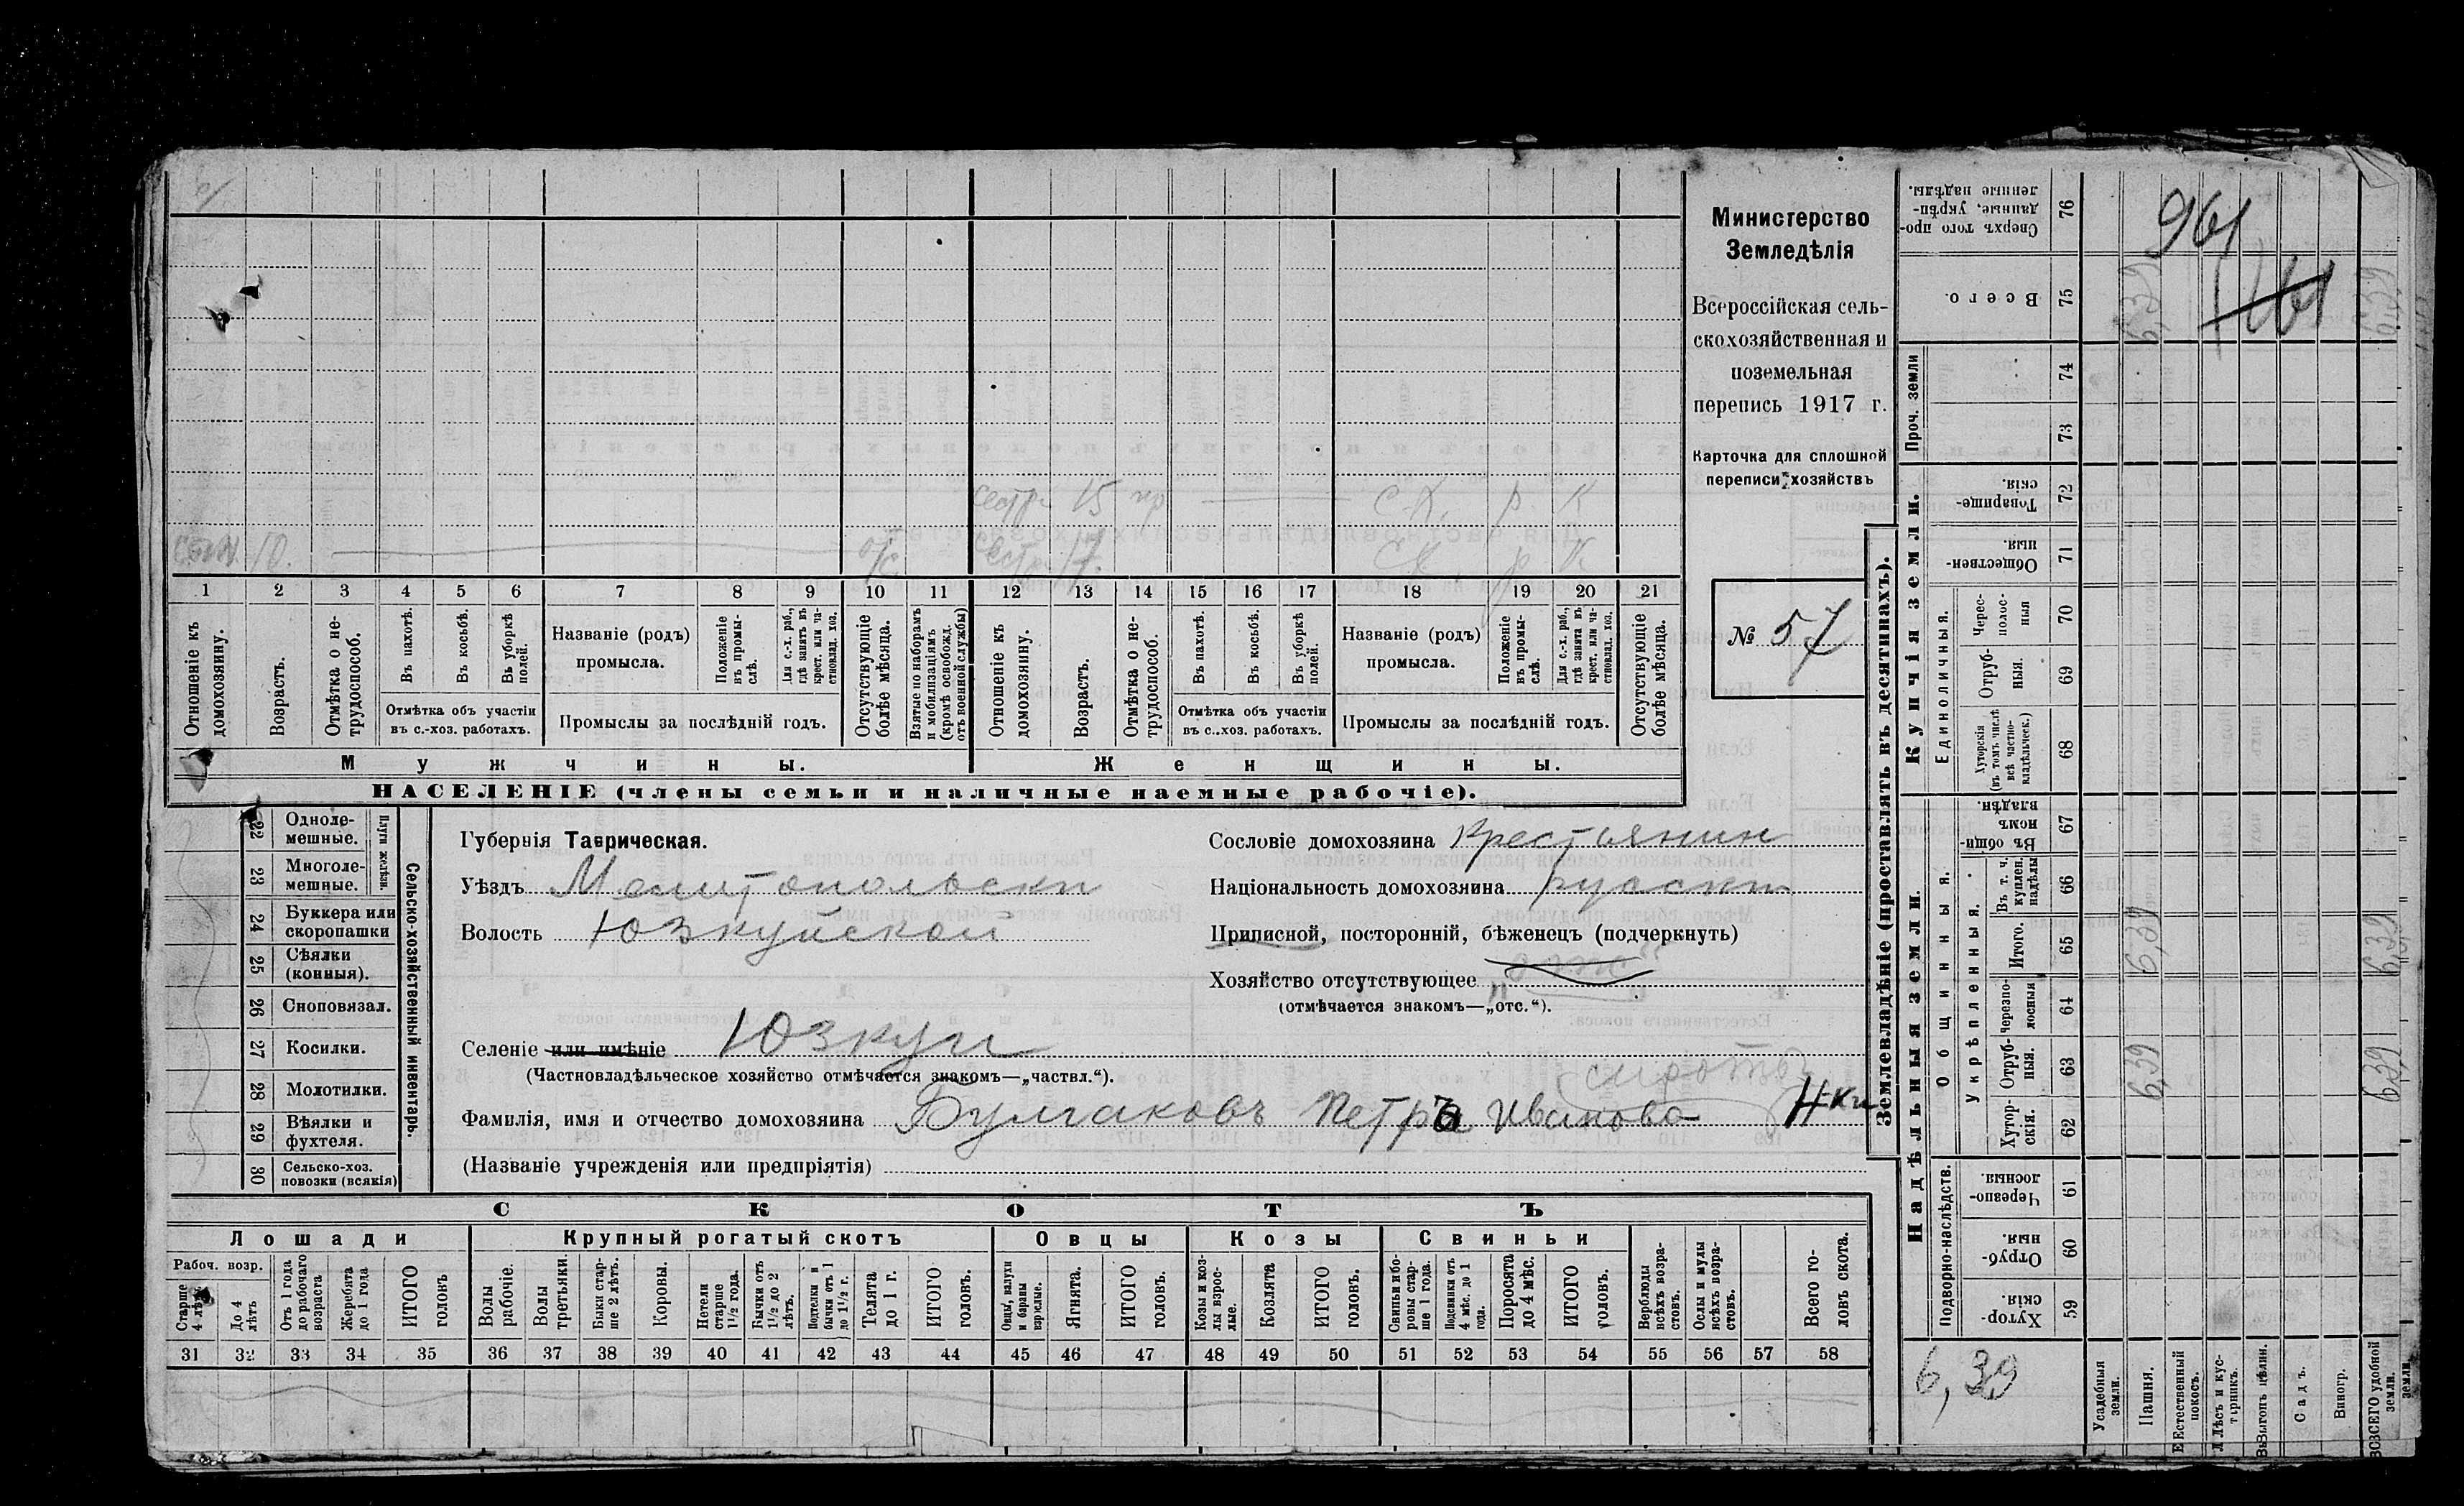 Министерство
Земледѣлія
Всероссійская сель-
скохозяйственная и
поземельная
перепись 1917 г.
Карточка для сплошной
переписи хозяйствъ
№ 57
сестр. 15 нр С.Х. р. К
сын. 10. о/с сестр. 17. С.Х. р К
1 2 3 4 5 6 7 8 9 10 11 12 13 14 15 16 17 18 19 20 21
Отношеніе къ домохозяину.
Возрастъ.
Отмѣтка о не-трудоспособ.
Въ пахотѣ.
Въ косьбѣ.
Въ уборкѣ полей.
Отмѣтка объ участіи
въ с.-хоз. работахъ.
Названіе (родъ)
промысла.
Положеніе въ промы-слѣ.
Для с.-х. раб., гдѣ занятъ въ крест. или ча-стновлад. хоз.
Промыслы за послѣдній годъ.
Отсутствующіе болѣе мѣсяца.
Взятые по наборамъ и мобилизаціямъ (кромѣ освобожд. отъ военной службы)
Отношеніе къ домохозяину.
Возрастъ.
Отмѣтка о не-трудоспособ.
Въ пахотѣ.
Въ косьбѣ.
Въ уборкѣ полей.
Отмѣтка объ участіи
въ с..хоз. работахъ.
Названіе (родъ)
промысла.
Положеніе въ промы-слѣ.
Для с.-х. раб., гдѣ занята въ крест. или ча-стновлад. хоз.
Промыслы за послѣдній годъ.
Отсутствующіе болѣе мѣсяца.
Мужчины. Женщины.
НАСЕЛЕНІЕ (члены семьи и наличные наемные рабочіе).
22 Одноле-мешные.
23 Многоле-мешные.
Плуги желѣзн.
24 Буккера или скоропашки
25 Сѣялки (конныя).
26 Сноповязал.
27 Косилки.
28 Молотилки.
29 Вѣялки и фухтеля.
30 Сельско-хоз. повозки (всякія)
Сельско-хозяйственный инвентарь.
Губернія Таврическая.
Уѣздъ Мелитопольски
Волость Юзкуйской
Селеніе или имѣніе Юзкуи
(Частновладѣльческое хозяйство отмѣчается знакомъ—„частвл.“).
Фамилія, имя и отчество домохозяина Булгаковъ Петра Иванова Н-ки
(Названіе учрежденія или предпріятія)
Сословіе домохозяина Крестьянин
Національность домохозяина русскі
Приписной, посторонній, бѣженецъ (подчеркнуть)
Хозяйство отсутствующее
(отмѣчается знакомъ—„отс.“).
сироты
СКОТЪ
Лошади Крупный рогатый скотъ Овцы Козы Свиньи
Рабоч. возр.
Старше 4 лѣтъ
До 4 лѣтъ
Отъ 1 года до рабочаго возраста
Жеребята до 1 года
ИТОГО головъ
Волы рабочіе.
Волы третьяки.
Быки стар-ше 2 лѣтъ.
Коровы.
Нетели старше 1½ года.
Бычки отъ 1½ до 2 лѣтъ.
Подтелки и бычки отъ 1 до 1½ г.
Телята до 1 г.
ИТОГО головъ.
Овцы, валухи и бараны взрослые.
Ягнята.
ИТОГО головъ.
Козы и коз-лы взрос-лые.
Козлята
ИТОГО головъ.
Свиньи и бо-ровы стар-ше 1 года.
Подсвинки отъ 4 мѣс. до 1 года.
Поросята до 4 мѣс.
ИТОГО головъ.
Верблюды всѣхъ возра-стовъ.
Ослы и мулы всѣхъ возра-стовъ.
Всего го-ловъ скота.
31 32 33 34 35 36 37 38 39 40 41 42 43 44 45 46 47 48 49 50 51 52 53 54 55 56 57 58
Землевладѣніе (проставлять въ десятинахъ).
Надѣльныя земли. Купчія земли. Проч. земли
Подворно-наслѣдств.
Общинныя.
Укрѣпленныя.
Единоличныя.
59 Хутор-скія
60 Отруб-ныя.
61 Черезпо-лосныя.
62 Хутор-скія.
63 Отруб-ныя. 6,39 6,39
64 Черезпо-лосныя
65 Итого. 6,39 6,39
66 Въ т. ч. куплен. надѣлы
67 Въ общин-номъ владѣн.
68 Хуторскія (въ томъ числѣ всѣ частно-владѣльческ.)
69 Отруб-ныя.
70 Черес-полос-ныя
71 Обществен-ныя.
72 Товарище-скія.
73
74
75 Всего. 6,39 6,39
76 Сверхъ того про-данные, укрѣп-ленные надѣлы.
961
1161
6,39
Усадебныя земли.
Пашня.
Естественный покосъ.
Лѣсъ и кус-тарникъ.
Выгонъ цѣлин.
Садъ.
Виногр.
ВСЕГО удобной земли.